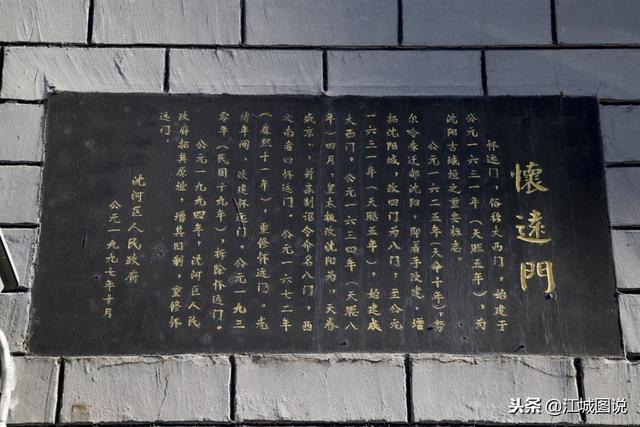 懷遠門
怀远门，俗称大西门，始建于
公元一六三一年（天聪五年），为
沈阳古城垣之重要标志。
公元一六二五年（天命十年），努
尔哈赤迁都沈阳，即着手改建、增
拓沈阳城，改四门为八门，至公元
一六三一年（天聪五年），始建成
大西门。公元一六三四年（天聪八
年）四月，皇太极改沈阳为，天眷
盛京，并亲制诏令命名八门，西
之南者曰怀远门。公元一六七二年
（康熙十一年），重修怀远门。光
绪年间，改建怀远门。公元一九三
零年（民国十九年），拆除怀远门。
公元一九九四年，沈河区人民
政府择其原址，增其旧制，重修怀
远门。
沈河区人民政府
公元一九九七年十月
头条@江城图说